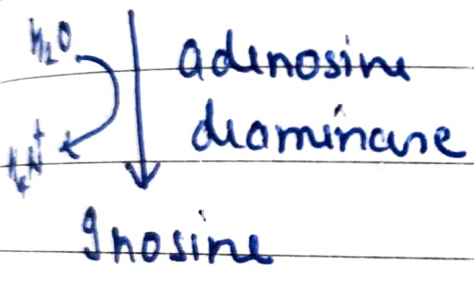 H₂O
adenosine
deaminase
NH₄⁺
Inosine